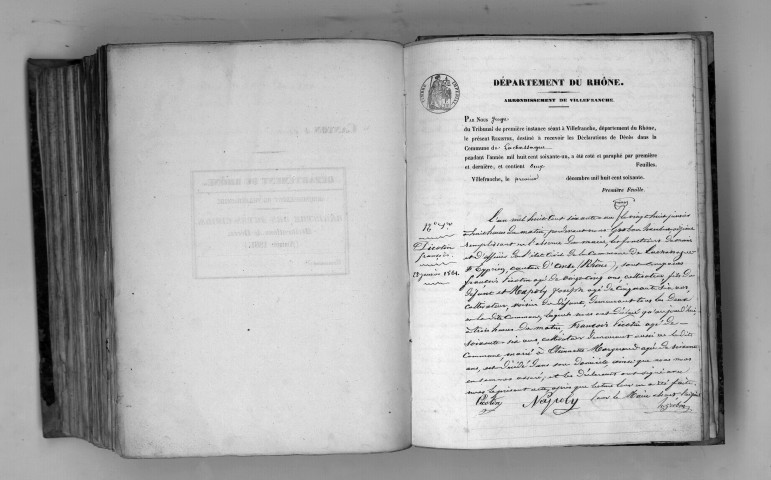 DÉPARTEMENT DU RHÔNE.
ARRONDISSEMENT DE VILLEFRANCHE.
PAR NOUS Juge
du Tribunal de première instance séant à Villefranche, département du Rhône,
le présent REGISTRE, destiné à recevoir les Déclarations de Décès dans la
Commune de Lachassagne
pendant l'année mil huit cent soixante-un, a été coté et paraphé par première
et dernière, et contient Feuilles.
Villefranche, le premier décembre mil huit cent soixante.
Première Feuille.
N° 1er
Picotin
françois.
28 janvier 1861.
L'an mil huit cent soixante un le vingt huit janvier
à huit heures du matin, pardevant nous
remplissant en l'absence du maire, les fonctions de maire
et d'officier de l'état civil de la Commune de Lachassagne
St Cyprien, canton d'Anse (Rhône), sont comparus
françois Picotin agé de vingt cinq ans, cultivateur fils du
défunt et Napoly Joseph agé de cinquante six ans,
cultivateur, voisin du défunt, demeurant tous les deux
en la dite Commune, lesquels nous ont déclaré qu'aujourd'hui
à trois heures du matin, François Picotin agé de
soixante six ans, cultivateur demeurant aussi en la dite
Commune, marié à Etiennette agée de soixante
ans, est décédé dans son domicile ainsi que nous nous
en sommes assuré, et les déclarants ont signé avec
nous le présent acte, après que lecture leur en a été faite.
Picotin Napoly pour le Maire